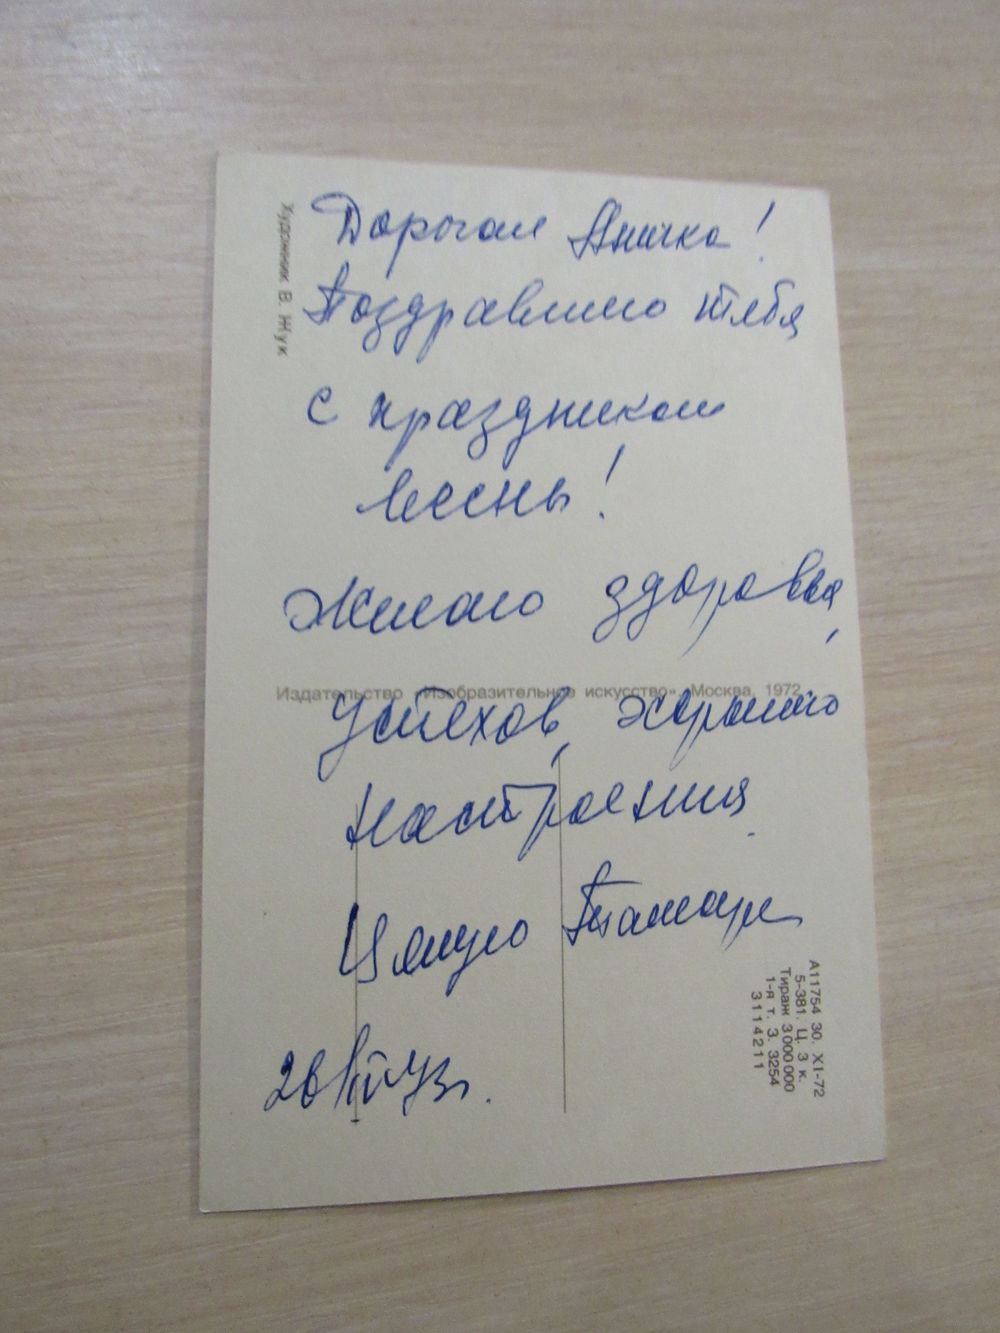 Художник В. Жук
Дорогая Аничка!
Поздравляю тебя
с праздником
весны!
Желаю здоровья,
Издательство «Изобразительное искусство». Москва. 1972
успехов, хорошего
настроения.
Целую Тамара
А11754 30. XI-72
5-381. Ц. 3 к.
Тираж 3 000 000
1-я т. З. 3254
3114211